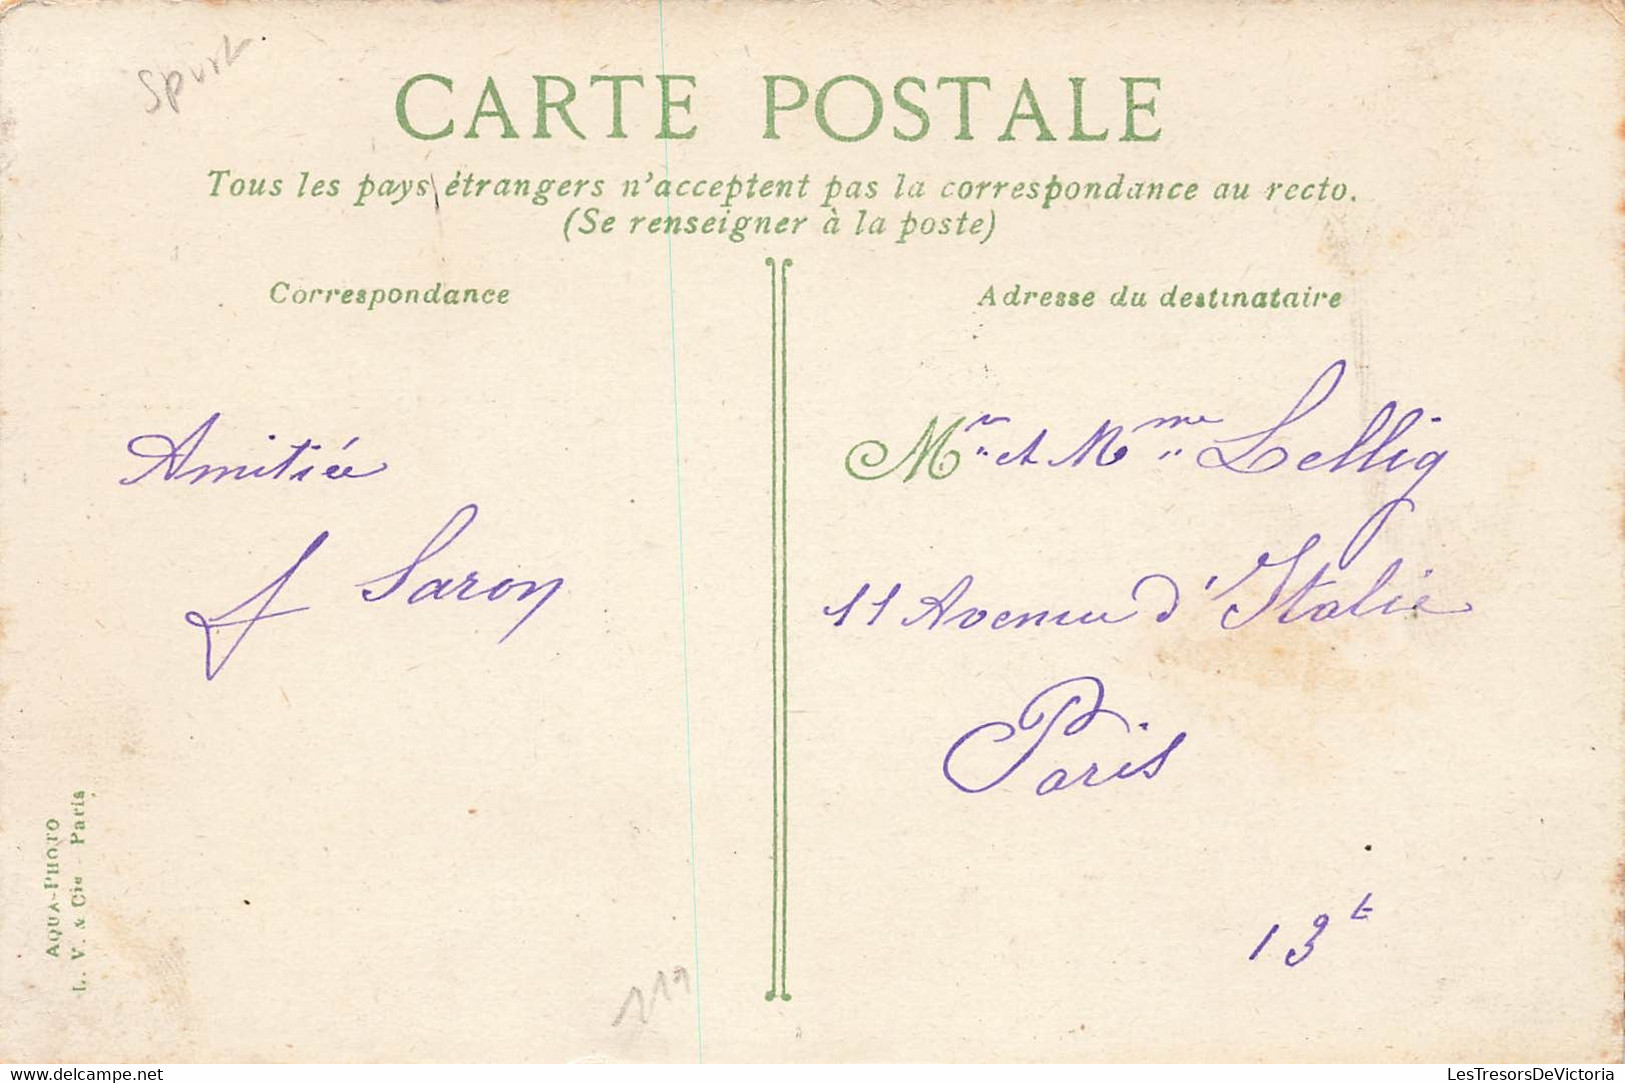 CARTE POSTALE
Tous les pays étrangers n'acceptent pas la correspondance au recto.
(Se renseigner à la poste)
Correspondance
Amitiée
Saron
AQUA-PHOTO
L. V. & Cie - Paris
Adresse du destinataire
Mr et Mme Lellig
11 Avenue d'Italie
Paris
13t
119
www.delcampe.net
LesTresorsDeVictoria